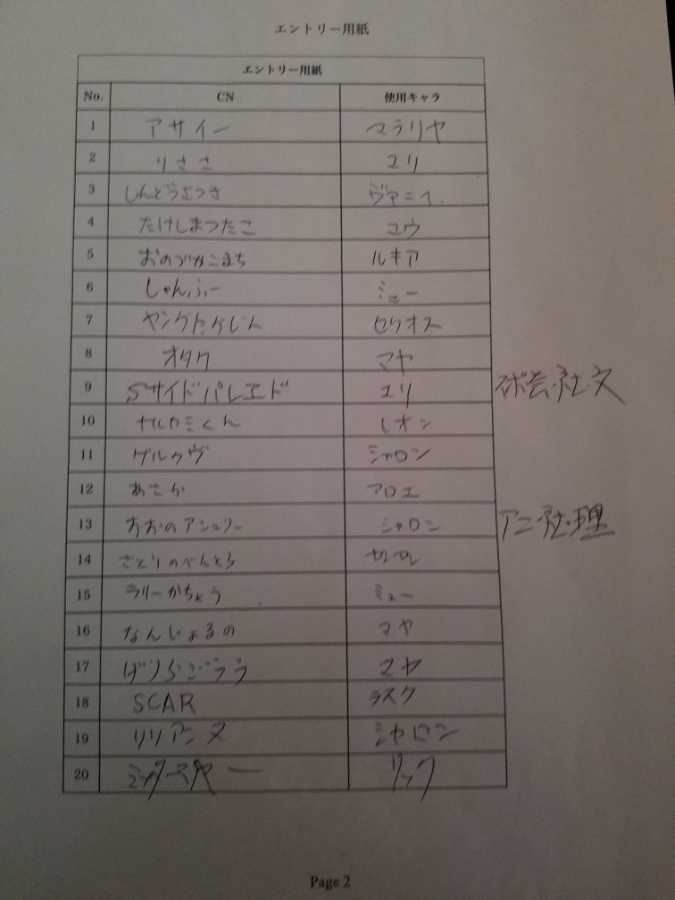 エントリー用紙
エントリー用紙
No. CN 使用キャラ
1 アサイー マラリヤ
2 りささ ユリ
3 しんどうさつき ヴァニィ
4 たけしまつたこ ユウ
5 おのづかこまち ルキア
6 しゃんふー ミュー
7 セリオス
8 オタク マヤ
9 Sサイドパレエド ユリ
10 ナルカミくん レオン
11 ゲルググ シャロン
12 あさか アロエ
13 おおのアシュリー シャロン アニ・社・理
14 さとりのべんとら
15 ラリーかちょう ミュー
16 なんじょるの マヤ
17 マヤ
18 SCAR ラスク
19 リリアンヌ シャロン
20 リック
Page 2